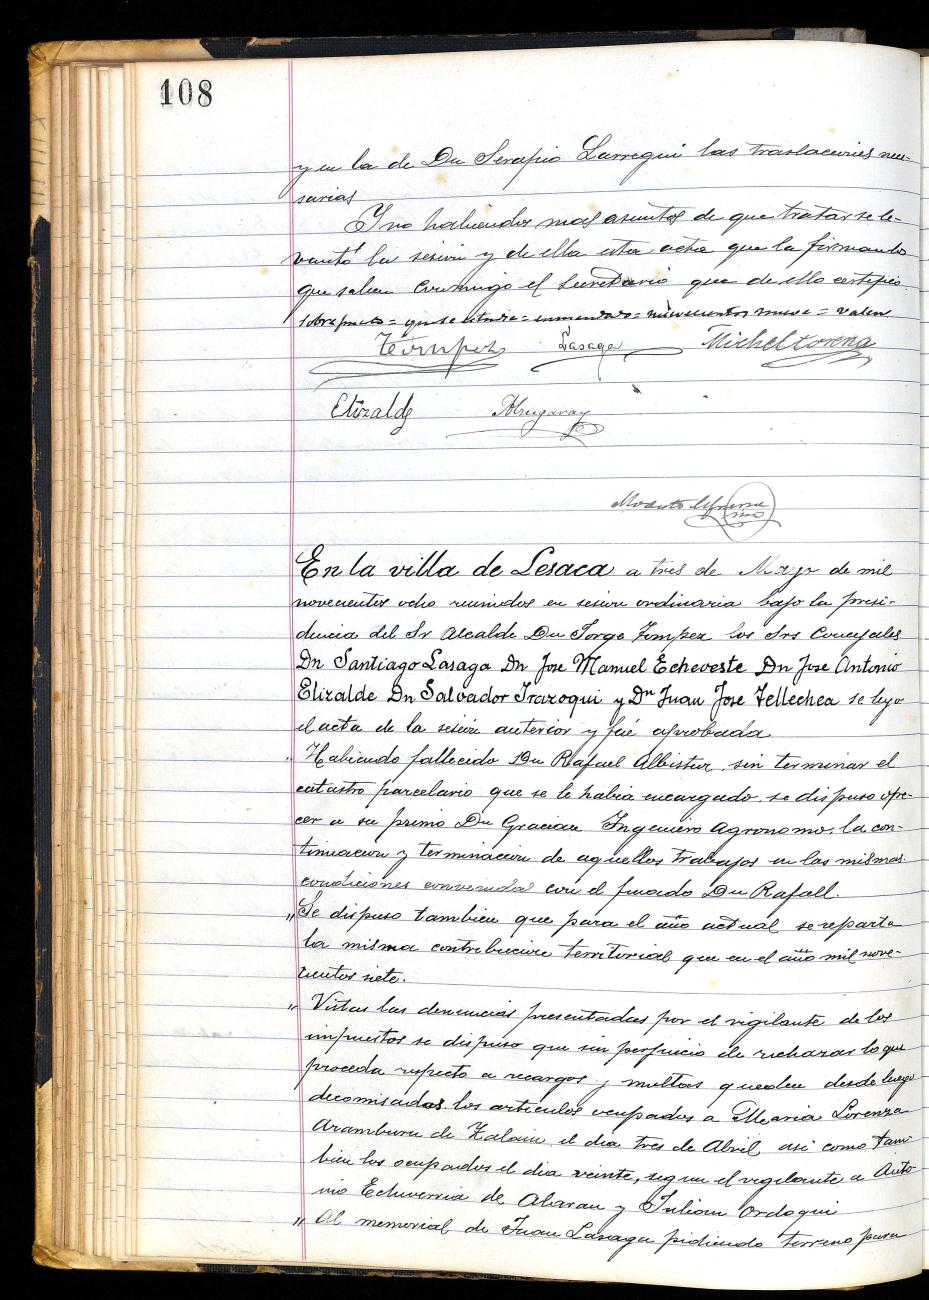 108
y en la de Dn Serapio Larregui las traslaciones nece-
sarias
Y no habiendo mas asuntos de que tratar se le-
vantó la sesión y de ella esta acta que la firman los
que saben conmigo el secretario que de ello certifico
sobrepuesto = = enmendado = = valen
Tompez Lasaga Michelxorena
Elizalde
En la villa de Lesaca a tres de Mayo de mil
novecientos ocho reunidos en sesion ordinaria bajo la presi-
dencia del Sr Alcalde Dn Jorge Tompez los Srs Concejales
Dn Santiago Lasaga Dn Jose Manuel Echeveste Dn Jose Antonio
Elizalde Dn Salvador Irazoqui y Dn Juan Jose Tellechea se leyo
el acta de la sesión anterior y fué aprobada
„ Habiendo fallecido Dn Rafael Albistur sin terminar el
catastro parcelario que se le habia encargado, se dispuso ofre-
cer a su primo Dn Gracian Ingeniero Agronomo, la con-
tinuacion y terminacion de aquellos trabajos en las mismas
condiciones convenida con el finado Dn Rafaell.
„ Se dispuso tambien que para el año actual se reparta
la misma contribucion territorial que en el año mil nove-
cientos siete.
„ Vistas las denuncias presentadas por el vigilante de los
impuestos se dispuso que sin perjuicio de rechazar lo que
proceda respecto a recargos y multas queden desde luego
decomisados los articulos ocupados a Maria Lorenza
Aramburu de Zalain el dia tres de Abril asi como tam-
bien los ocupados el dia veinte, segun el vigilante a Anto-
nio Echeverria de Alaran y Julian Ordoqui
„ Al memorial de Juan Lasaga pidiendo terreno para